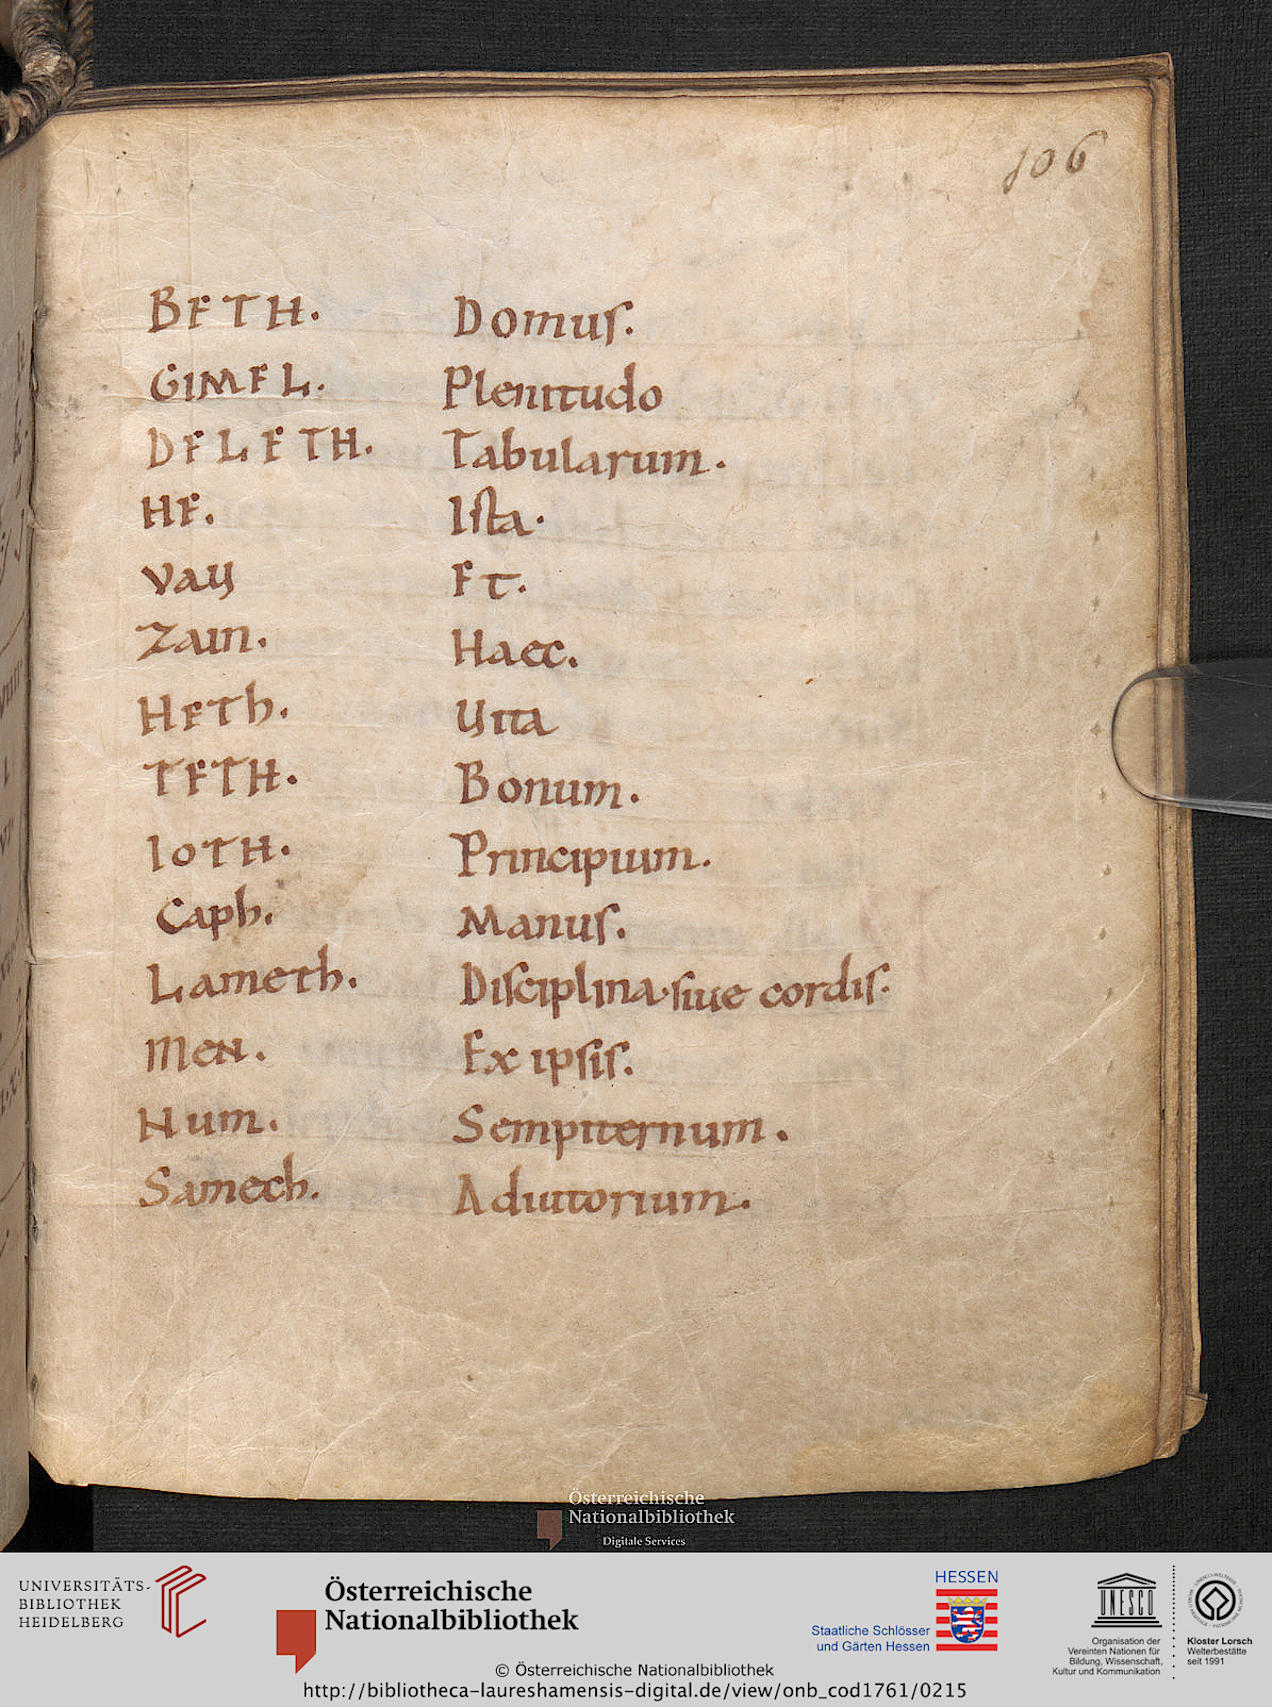 106
BETH. Domus.
GIMEL. Plenitudo
DELETH. Tabularum.
HE. Ista.
Vau Et.
Zain. Haec.
HETh. Uita
TETH. Bonum.
IOTH. Principium.
Caph. Manus.
Lameth. Disciplina. siue cordis.
MEN. Ex ipsis.
Num. Sempiternum.
Samech. Adiutorium.
Österreichische
Nationalbibliothek
Digitale Services
UNIVERSITÄTS-
BIBLIOTHEK
HEIDELBERG
Österreichische
Nationalbibliothek
HESSEN
Staatliche Schlösser
und Gärten Hessen
UNESCO
Organisation der
Vereinten Nationen für
Bildung, Wissenschaft,
Kultur und Kommunikation
Kloster Lorsch
Welterbestätte
seit 1991
© Österreichische Nationalbibliothek
http://bibliotheca-laureshamensis-digital.de/view/onb_cod1761/0215